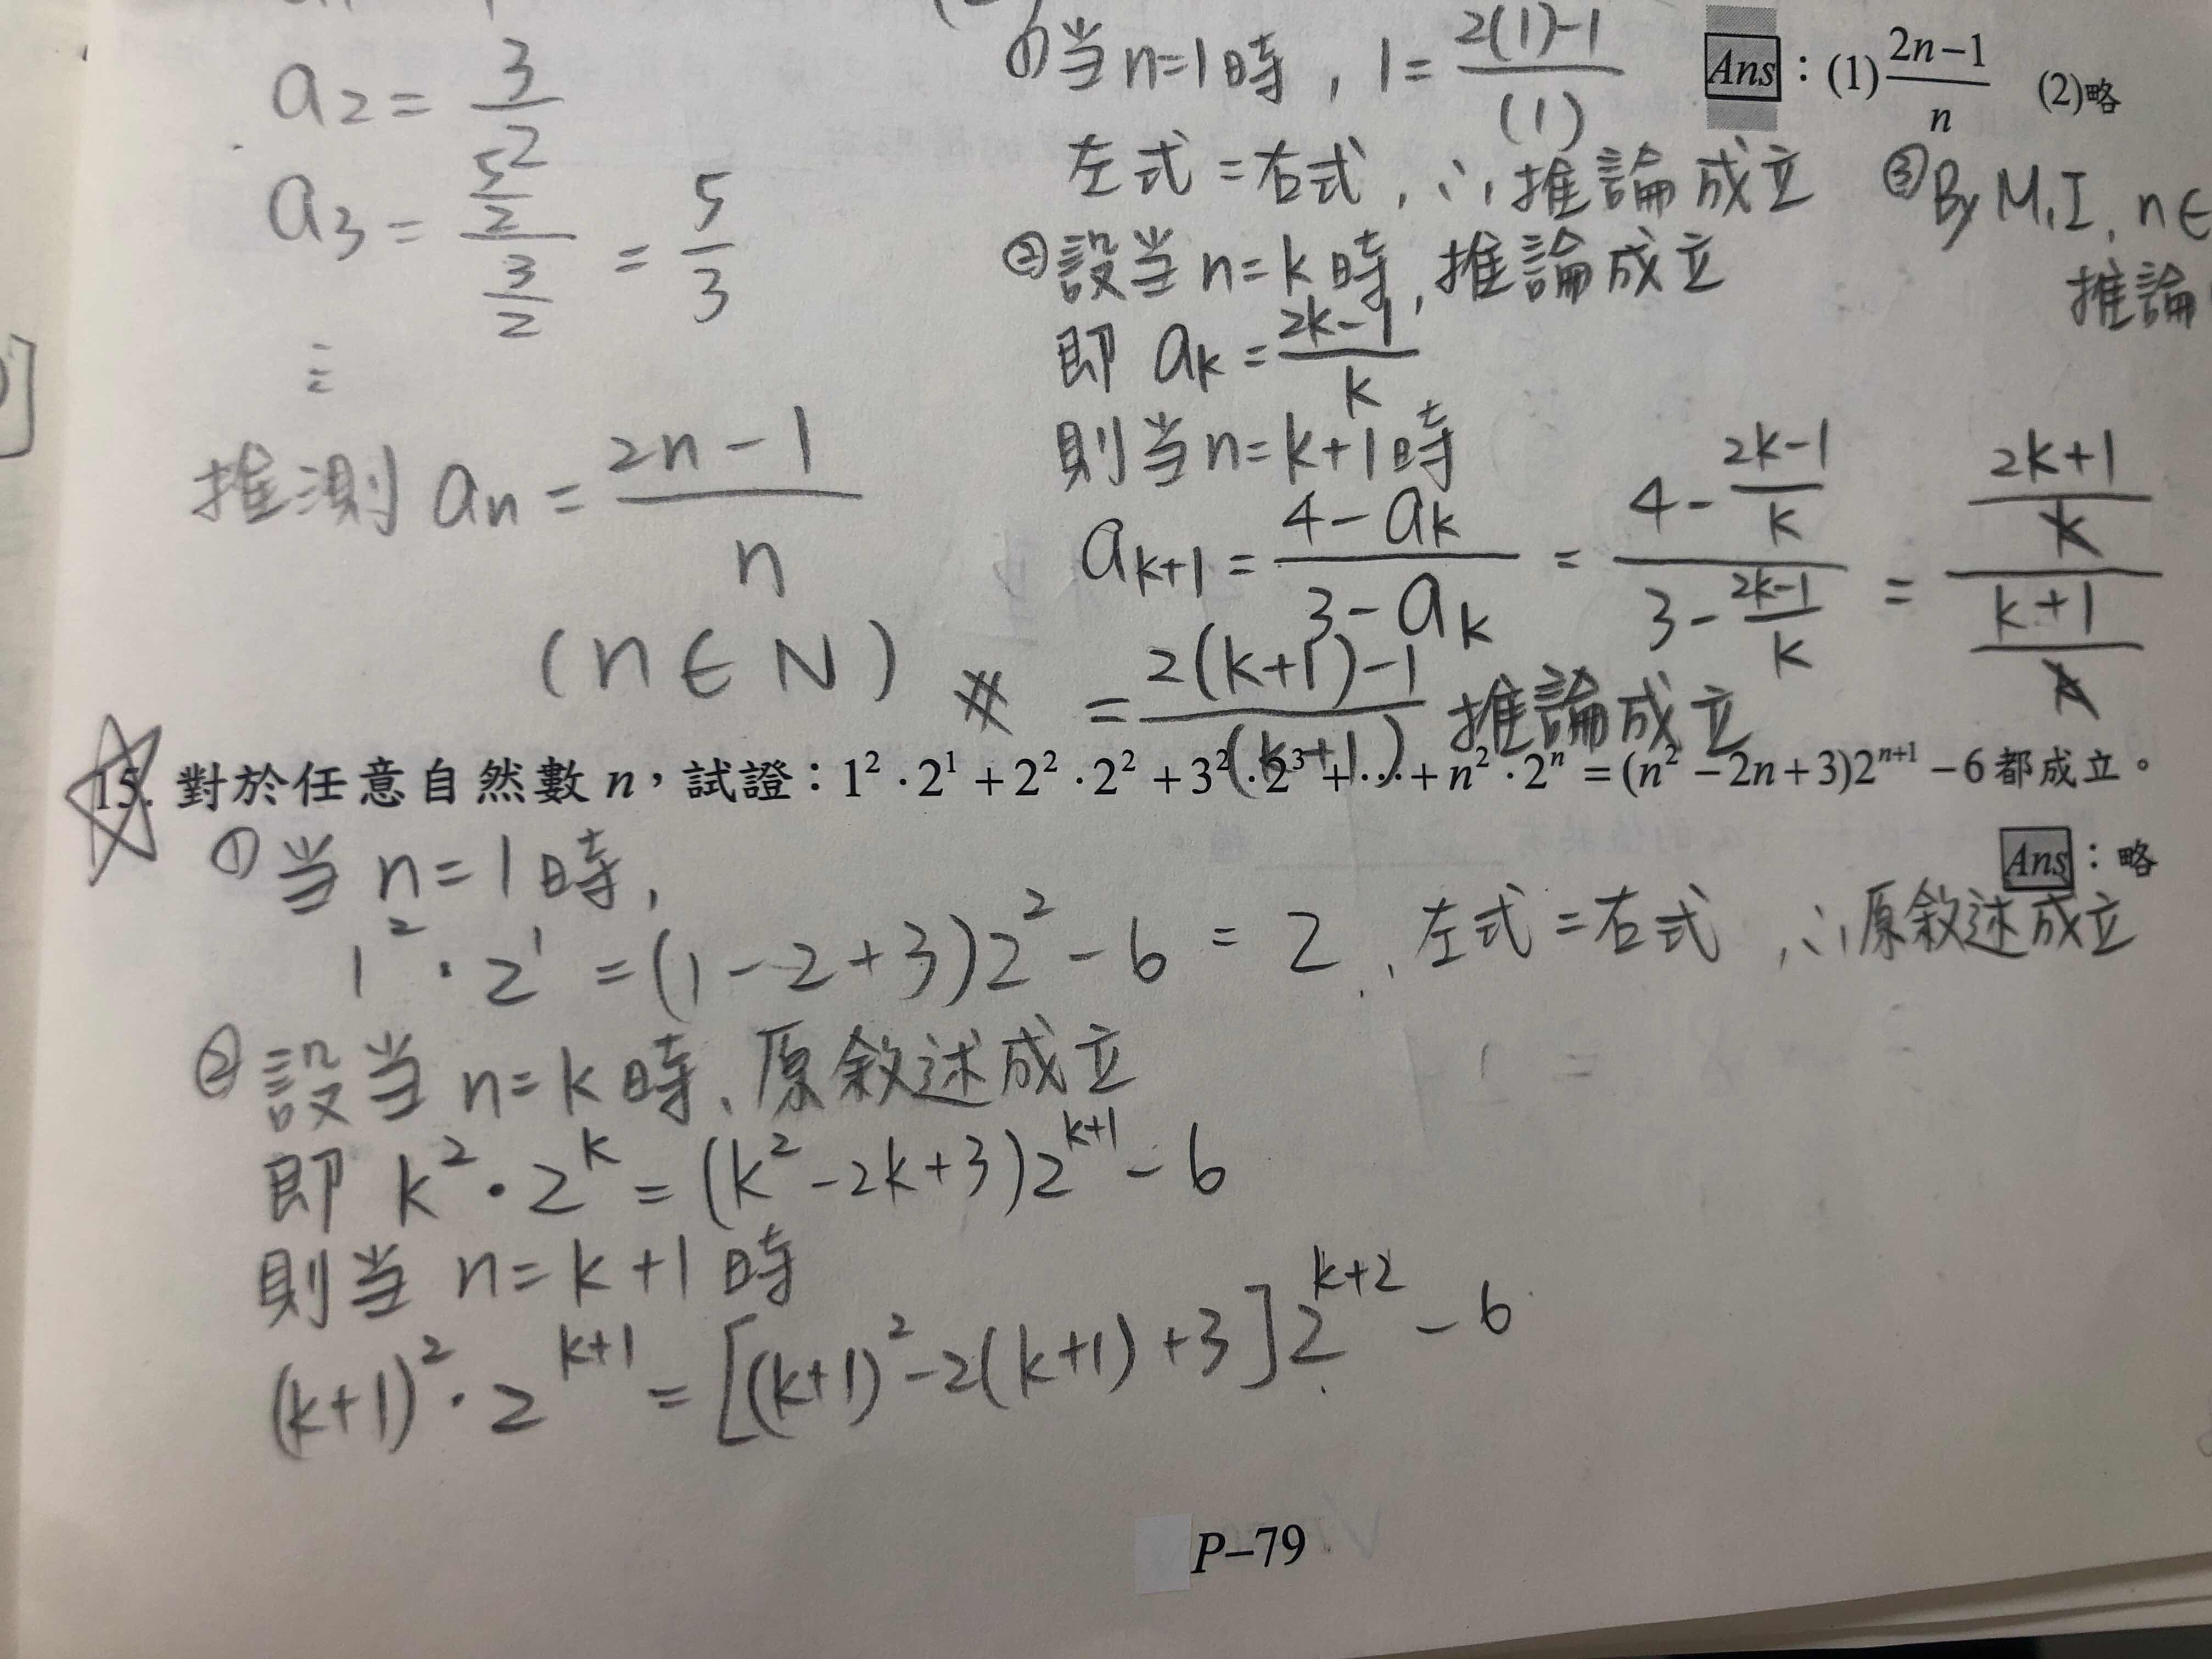 a₂ = 3/2
a₃ = (5/2)/(3/2) = 5/3
⋮
推測 aₙ = (2n-1)/n
(n∈N) ※
①当 n=1時, 1 = (2(1)-1)/(1)
左式=右式, ∴推論成立
②設当 n=k時, 推論成立
即 aₖ = (2k-1)/k
則当 n=k+1時
aₖ₊₁ = (4-aₖ)/(3-aₖ) = (4-(2k-1)/k)/(3-(2k-1)/k) = ((2k+1)/k)/((k+1)/k)
= (2(k+1)-1)/(k+1) 推論成立
Ans：(1) (2n-1)/n (2)略
③By M.I. n∈
推論
15. 對於任意自然數 n，試證：1²·2¹+2²·2²+3²·2³+⋯+n²·2ⁿ=(n²-2n+3)2ⁿ⁺¹-6都成立。
Ans：略
①当 n=1時,
1²·2¹=(1-2+3)2²-6=2, 左式=右式, ∴原敘述成立
②設当 n=k時, 原敘述成立
即 k²·2ᵏ=(k²-2k+3)2ᵏ⁺¹-6
則当 n=k+1時
(k+1)²·2ᵏ⁺¹=[(k+1)²-2(k+1)+3]2ᵏ⁺²-6
P-79